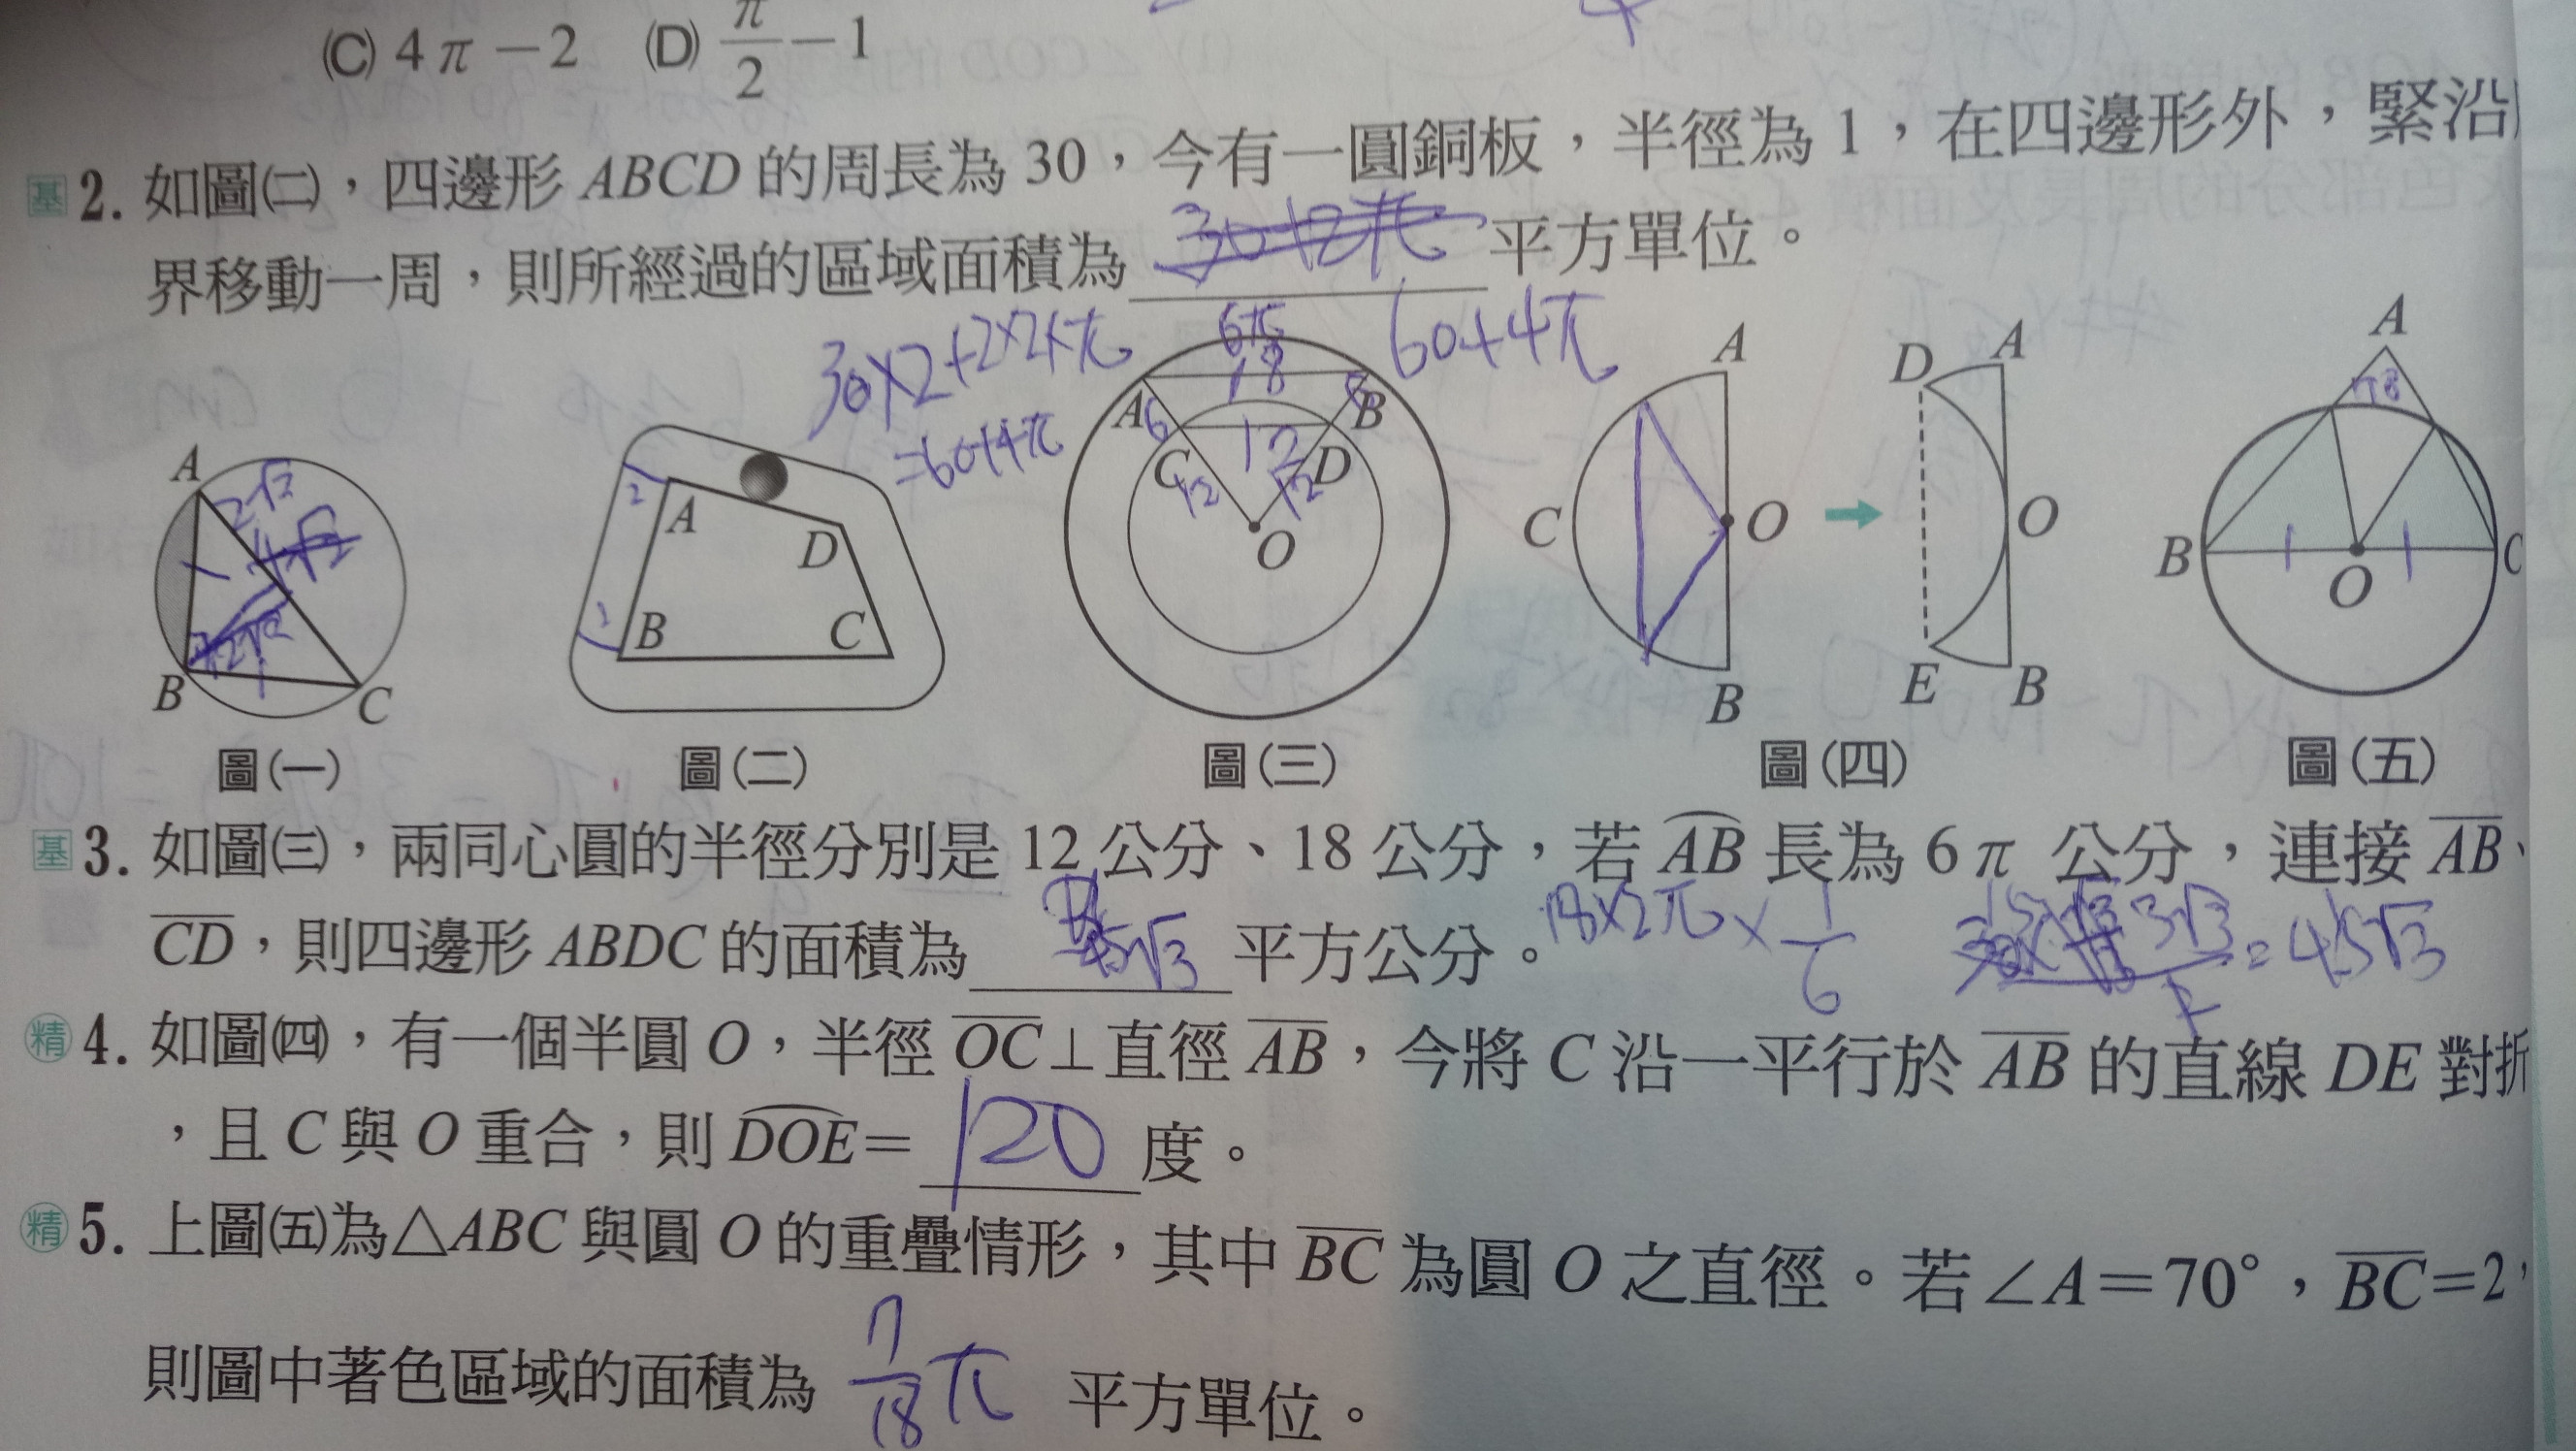 (C) 4π－2 (D) π/2－1
基 2. 如圖(二)，四邊形 ABCD 的周長為 30，今有一圓銅板，半徑為 1，在四邊形外，緊沿
界移動一周，則所經過的區域面積為 30+2π 平方單位。
30×2+2×2×π
=60+4π
60+4π
A 2√2 4√2 B C
2 A D 1 B C
6π 18 A 6 B 12 C D 12 12 O
A C O B
D A O E B
A 78 B O C
圖(一) 圖(二) 圖(三) 圖(四) 圖(五)
基 3. 如圖(三)，兩同心圓的半徑分別是 12 公分、18 公分，若 AB 長為 6π 公分，連接 AB、
CD，則四邊形 ABDC 的面積為 45√3 平方公分。
18×2π×1/6
3√3
=45√3
精 4. 如圖(四)，有一個半圓 O，半徑 OC⊥直徑 AB，今將 C 沿一平行於 AB 的直線 DE 對折
，且 C 與 O 重合，則 DOE＝ 120 度。
精 5. 上圖(五)為△ABC 與圓 O 的重疊情形，其中 BC 為圓 O 之直徑。若∠A＝70°，BC＝2，
則圖中著色區域的面積為 7/18π 平方單位。